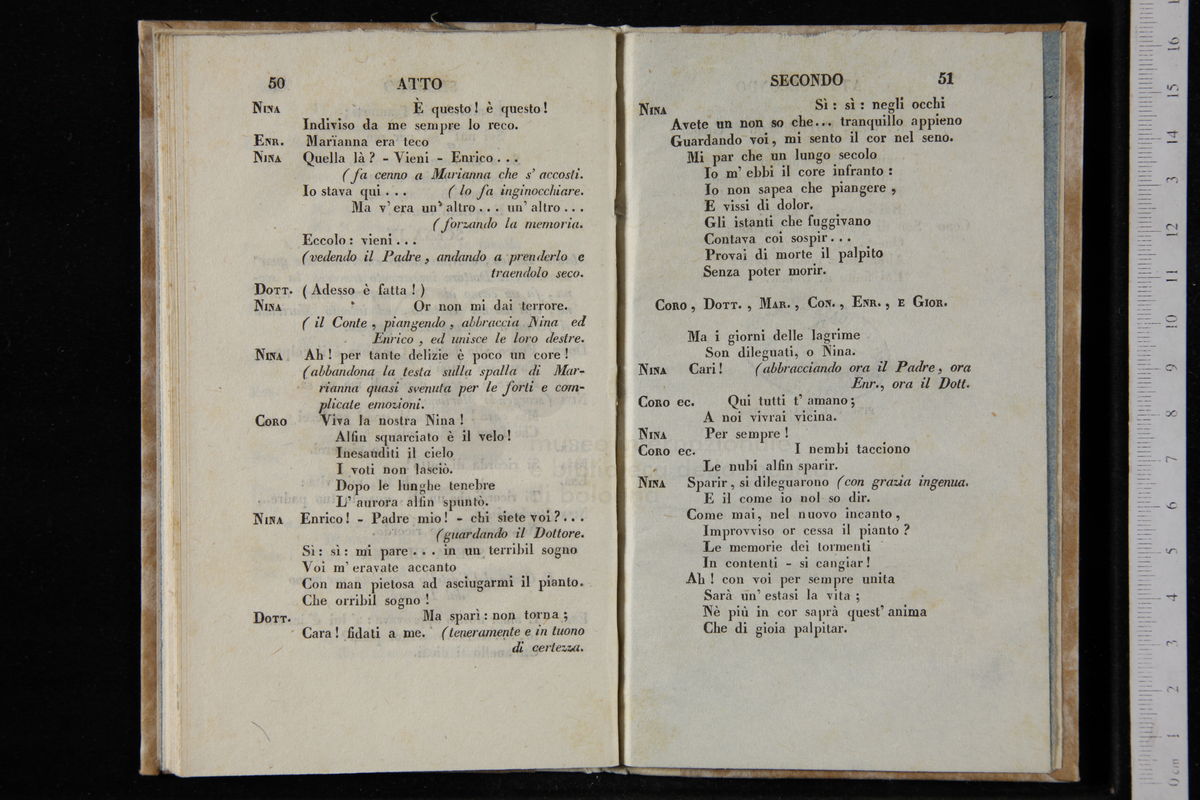 50 ATTO
NINA È questo! è questo!
Indiviso da me sempre lo reco.
ENR. Marianna era teco
NINA Quella là? - Vieni - Enrico...
(fa cenno a Marianna che s' accosti.
Io stava qui... (lo fa inginocchiare.
Ma v' era un' altro... un' altro...
(forzando la memoria.
Eccolo: vieni...
(vedendo il Padre, andando a prenderlo e
traendolo seco.
DOTT. (Adesso è fatta!)
NINA Or non mi dai terrore.
(il Conte, piangendo, abbraccia Nina ed
Enrico, ed unisce le loro destre.
NINA Ah! per tante delizie è poco un core!
(abbandona la testa sulla spalla di Mar-
rianna quasi svenuta per le forti e com-
plicate emozioni.
CORO Viva la nostra Nina!
Alfin squarciato è il velo!
Inesauditi il cielo
I voti non lasciò.
Dopo le lunghe tenebre
L' aurora alfin spuntò.
NINA Enrico! - Padre mio! - chi siete voi?...
(guardando il Dottore.
Sì: sì: mi pare... in un terribil sogno
Voi m' eravate accanto
Con man pietosa ad asciugarmi il pianto.
Che orribil sogno!
DOTT. Ma sparì: non torna;
Cara! fidati a me. (teneramente e in tuono
di certezza.
SECONDO 51
NINA Sì: sì: negli occhi
Avete un non so che... tranquillo appieno
Guardando voi, mi sento il cor nel seno.
Mi par che un lungo secolo
Io m' ebbi il core infranto:
Io non sapea che piangere,
E vissi di dolor.
Gli istanti che fuggivano
Contava coi sospir...
Provai di morte il palpito
Senza poter morir.
CORO, DOTT., MAR., CON., ENR., E GIOR.
Ma i giorni delle lagrime
Son dileguati, o Nina.
NINA Cari! (abbracciando ora il Padre, ora
Enr., ora il Dott.
CORO ec. Qui tutti t' amano;
A noi vivrai vicina.
NINA Per sempre!
CORO ec. I nembi tacciono
Le nubi alfin sparir.
NINA Sparir, si dileguarono (con grazia ingenua.
E il come io nol so dir.
Come mai, nel nuovo incanto,
Improvviso or cessa il pianto?
Le memorie dei tormenti
In contenti - si cangiar!
Ah! con voi per sempre unita
Sarà un' estasi la vita;
Nè più in cor saprà quest' anima
Che di gioia palpitar.
0 cm 1 2 3 4 5 6 7 8 9 10 11 12 13 14 15 16